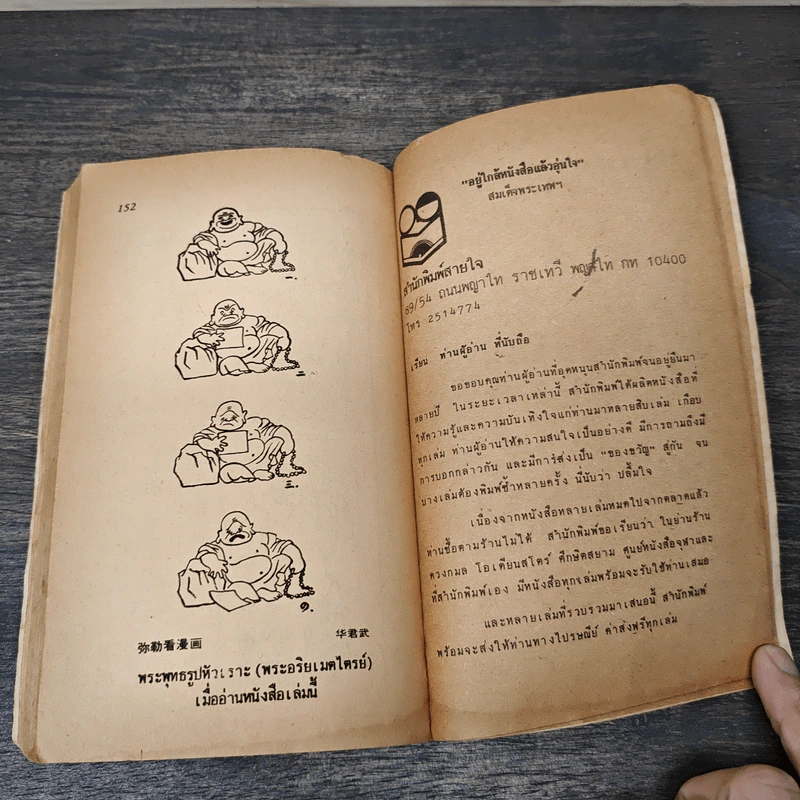 152
一.
二.
三.
๑.
弥勒看漫画
华君武
พระพุทธรูปหัวเราะ (พระอริยเมตไตรย์)
เมื่ออ่านหนังสือเล่มนี้
"อยู่ใกล้หนังสือแล้วอุ่นใจ"
สมเด็จพระเทพฯ
สำนักพิมพ์สายใจ
69/54 ถนนพญาไท ราชเทวี พญาไท กท 10400
โทร 2514774
เรียน ท่านผู้อ่าน ที่นับถือ
ขอขอบคุณท่านผู้อ่านที่อุดหนุนสำนักพิมพ์จนอยู่ยืนมา
หลายปี ในระยะเวลาเหล่านี้ สำนักพิมพ์ได้ผลิตหนังสือที่
ให้ความรู้และความบันเทิงใจแก่ท่านมาหลายสิบเล่ม เกือบ
ทุกเล่ม ท่านผู้อ่านให้ความสนใจเป็นอย่างดี มีการถามถึงมี
การบอกกล่าวกัน และมีการส่งเป็น "ของขวัญ" สู่กัน จน
บางเล่มต้องพิมพ์ซ้ำหลายครั้ง นี่นับว่า ปลื้มใจ
เนื่องจากหนังสือหลายเล่มหมดไปจากตลาดแล้ว
ท่านซื้อตามร้านไม่ได้ สำนักพิมพ์ขอเรียนว่า ในย่านร้าน
ดวงกมล โอเดียนสโตร์ ศึกษิตสยาม ศูนย์หนังสือจุฬาและ
ที่สำนักพิมพ์เอง มีหนังสือทุกเล่มพร้อมจะรับใช้ท่านเสมอ
และหลายเล่มที่รวบรวมมาเสนอนี้ สำนักพิมพ์
พร้อมจะส่งให้ท่านทางไปรษณีย์ ค่าส่งฟรีทุกเล่ม